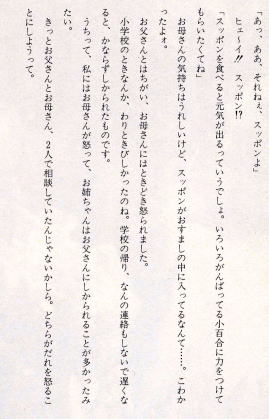 「あっ、ああ、それねぇ、スッポンよ」
ヒェ〜イ!! スッポン!?
「スッポンを食べると元気が出るっていうでしょ。いろいろがんばってる小百合に力をつけて
もらいたくてね」
お母さんの気持ちはうれしいけど、スッポンがおすましの中に入ってるなんて……。こわか
ったよォ。
お父さんとはちがい、お母さんにはときどき怒られました。
小学校のときなんか、わりときびしかったのね。学校の帰り、なんの連絡もしないで遅くな
ると、かならずしかられたものです。
うちって、私にはお母さんが怒って、お姉ちゃんはお父さんにしかられることが多かったみ
たい。
きっとお父さんとお母さん、2人で相談していたんじゃないかしら。どちらがだれを怒るこ
とにしようって。